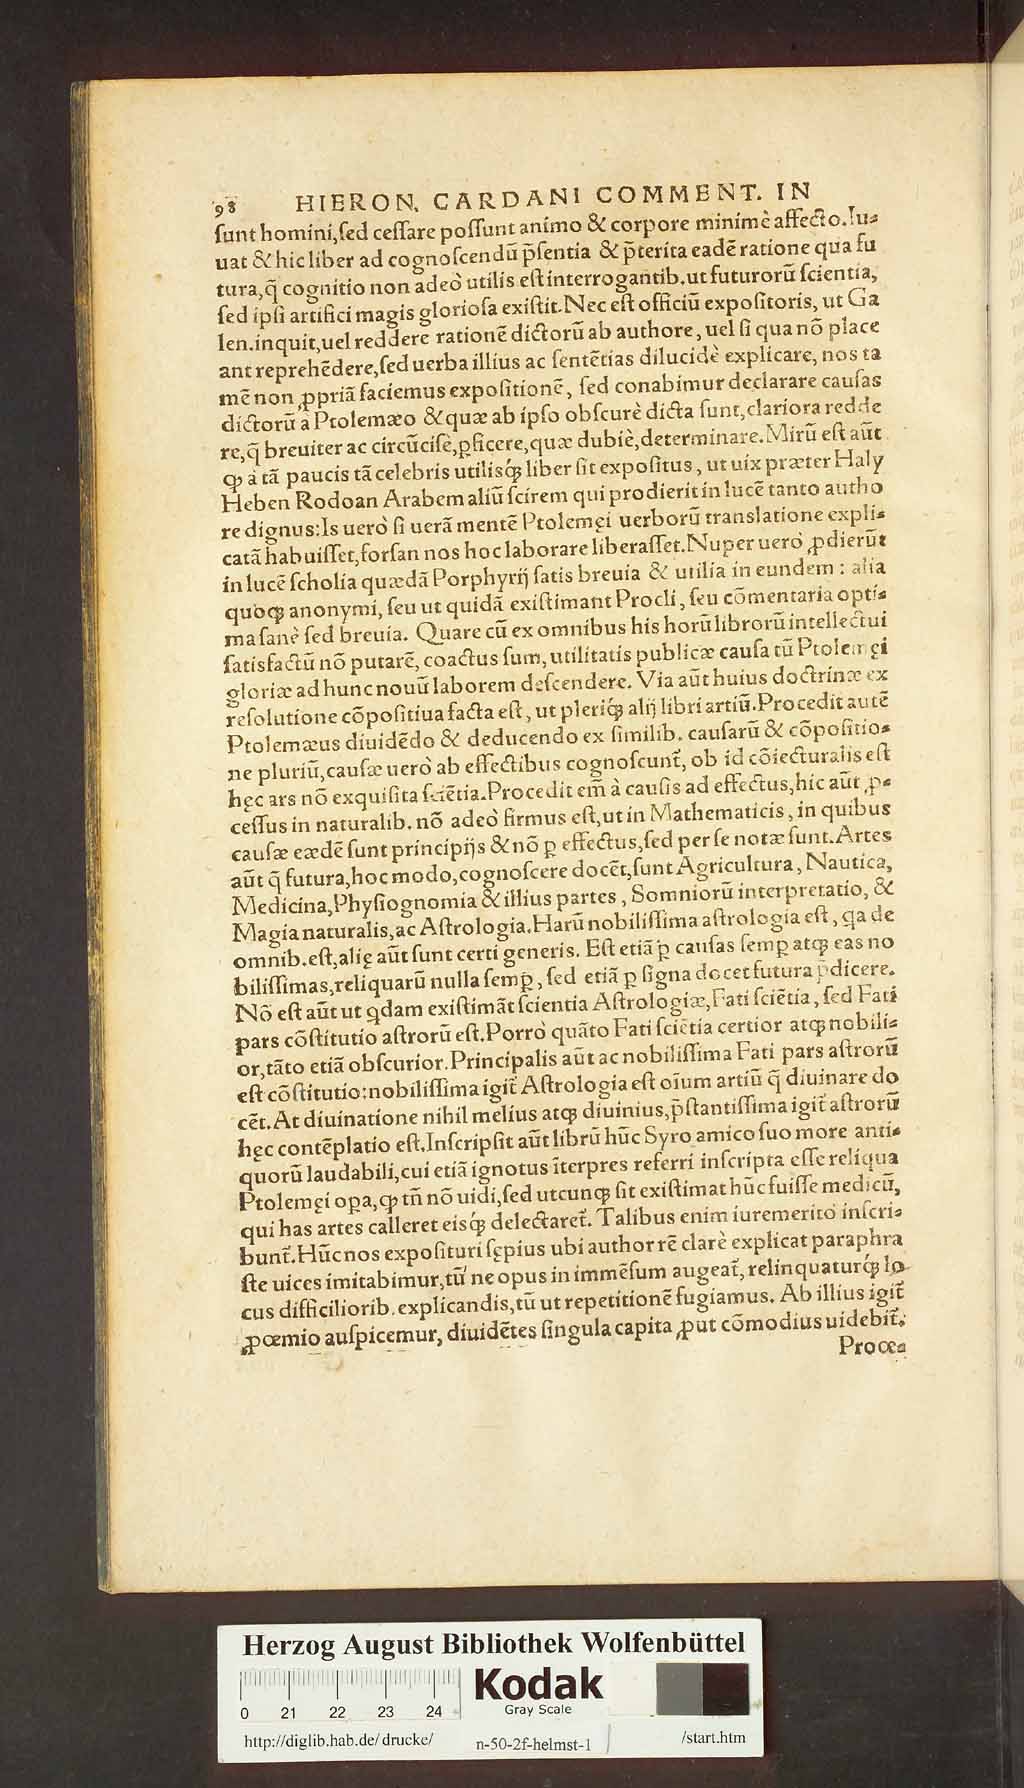 98 HIERON. CARDANI COMMENT. IN
ſunt homini, ſed ceſſare poſſunt animo & corpore minimè affecto. Iu-
uat & hic liber ad cognoſcendū p̄ſentia & p̄terita eadē ratione qua fu
tura, q̃ cognitio non adeò utilis eſt interrogantib. ut futurorū ſcientia,
ſed ipſi artifici magis glorioſa exiſtit. Nec eſt officiū expoſitoris, ut Ga
len. inquit, uel reddere rationē dictorū ab authore, uel ſi qua nō place
ant reprehēdere, ſed uerba illius ac ſentētias dilucidè explicare, nos ta
mē non ꝓpriā faciemus expoſitionē, ſed conabimur declarare cauſas
dictorū à Ptolemæo & quæ ab ipſo obſcurè dicta ſunt, clariora redde
re, q̃ breuiter ac circūciſè, ꝑficere, quæ dubiè, determinare. Mirū eſt aūt
ꝙ à tā paucis tā celebris utilisq́ꝫ liber ſit expoſitus, ut uix præter Haly
Heben Rodoan Arabem aliū ſcirem qui prodierit in lucē tanto autho
re dignus: Is uerò ſi uerā mentē Ptolemęi uerborū translatione expli-
catā habuiſſet, forſan nos hoc laborare liberaſſet. Nuper uerò ꝓdierūt
in lucē ſcholia quædā Porphyrij ſatis breuia & utilia in eundem: alia
quoqꝫ anonymi, ſeu ut quidā exiſtimant Procli, ſeu cōmentaria opti-
ma ſanè ſed breuia. Quare cū ex omnibus his horū librorū intellectui
ſatisfactū nō putarē, coactus ſum, utilitatis publicæ cauſa tū Ptolemęi
gloriæ ad hunc nouū laborem deſcendere. Via aūt huius doctrinæ ex
reſolutione cōpoſitiua facta eſt, ut pleriqꝫ alij libri artiū. Procedit autē
Ptolemæus diuidēdo & deducendo ex ſimilib. cauſarū & cōpoſitio-
ne pluriū, cauſæ uerò ab effectibus cognoſcunt᷑, ob id cōiecturalis eſt
hęc ars nō exquiſita ſciētia. Procedit em̄ à cauſis ad effectus, hic aūt ꝓ-
ceſſus in naturalib. nō adeò firmus eſt, ut in Mathematicis, in quibus
cauſæ eædē ſunt principijs & nō ꝑ effectus, ſed per ſe notæ ſunt. Artes
aūt q̃ futura, hoc modo, cognoſcere docēt, ſunt Agricultura, Nautica,
Medicina, Phyſiognomia & illius partes, Somniorū interpretatio, &
Magia naturalis, ac Aſtrologia. Harū nobiliſſima aſtrologia eſt, q̃a de
omnib. eſt, alię aūt ſunt certi generis. Eſt etiā ꝑ cauſas ſemꝑ atqꝫ eas no
biliſſimas, reliquarū nulla ſemꝑ, ſed etiā ꝑ ſigna docet futura p̄dicere.
Nō eſt aūt ut q̇dam exiſtimāt ſcientia Aſtrologiæ, Fati ſciētia, ſed Fati
pars cōſtitutio aſtrorū eſt. Porrò quāto Fati ſciētia certior atqꝫ nobili-
or, tāto etiā obſcurior. Principalis aūt ac nobiliſſima Fati pars aſtrorū
eſt cōſtitutio: nobiliſſima igit᷑ Aſtrologia eſt oīum artiū q̃ diuinare do
cēt. At diuinatione nihil melius atqꝫ diuinius, p̄ſtantiſſima igit᷑ aſtrorū
hęc contēplatio eſt. Inſcripſit aūt librū hūc Syro amico ſuo more anti-
quorū laudabili, cui etiā ignotus īterpres referri inſcripta eſſe reliqua
Ptolemęi oꝑa, ꝙ tn̄ nō uidi, ſed utcunqꝫ ſit exiſtimat hūc fuiſſe medicū,
qui has artes calleret eisq́ꝫ delectaret᷑. Talibus enim iure merito inſcri-
bunt᷑. Hūc nos expoſituri ſępius ubi author rē clarè explicat paraphra
ſte uices imitabimur, tū ne opus in immēſum augeat᷑, relinquaturq́ꝫ lo
cus difficiliorib. explicandis, tū ut repetitionē fugiamus. Ab illius igit᷑
ꝓœmio auſpicemur, diuidētes ſingula capita ꝓut cōmodius uidebit᷑.
Proœ-
Herzog August Bibliothek Wolfenbüttel
0 21 22 23 24
Kodak
Gray Scale
http://diglib.hab.de/drucke/ n-50-2f-helmst-1 /start.htm